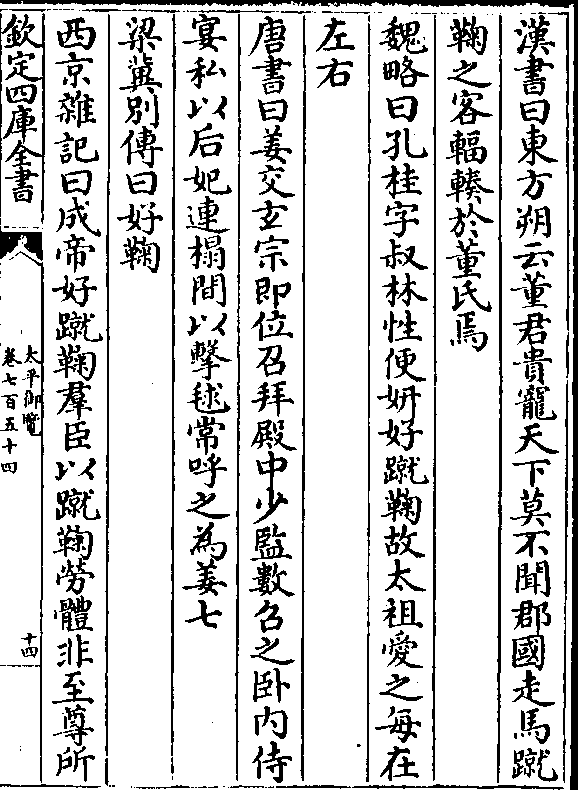 漢書曰東方朔云董君貴寵天下莫不聞郡國走馬蹴
鞠之客輻輳於董氏焉
魏略曰孔桂字叔林性便妍好蹴鞠故太祖愛之每在
左右
唐書曰姜交玄宗即位召拜殿中少監數召之卧内侍
宴私以后妃連榻間以擊毬常呼之為姜七
梁冀别傳曰好鞠
西京雜記曰成帝好蹴鞠羣臣以蹴鞠勞體非至尊所
欽定四庫全書
太平御覽
卷七百五十四
十四